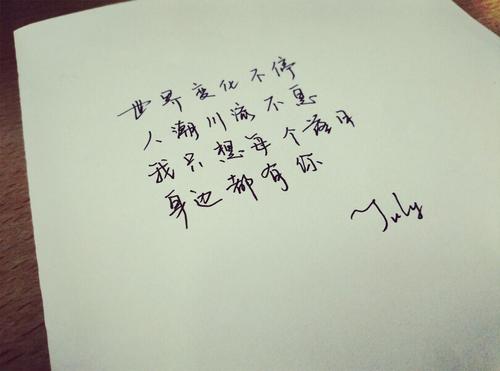 世界变化不停
人潮川流不息
我只想每个落日
身边都有你
July